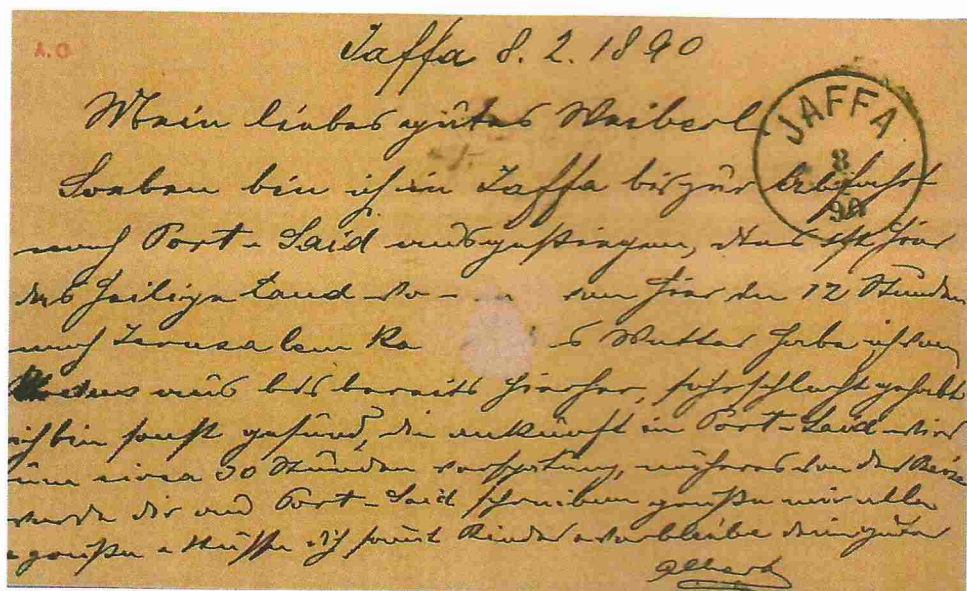 A.O
Jaffa 8. 2. 1890
Mein liebes gutes Weiberl
JAFFA
8
90
Soeben bin ich in Jaffa bis zur Abfahrt
nach Port-Said ausgestiegen, das ist hier
das heilige Land von hier in 12 Stunden
nach Jerusalem Wetter habe ich von
aus bis bereits hierher, sehr schlecht gehabt
ich bin sonst gesund, die ankunft in Port-Said wird
um circa 30 Stunden verspätung, näheres von der Reise
werde dir aus Port-Said schreiben grüsse mir alle
grüsse küsse dich samt Kinder verbleibe dein guter
Albert